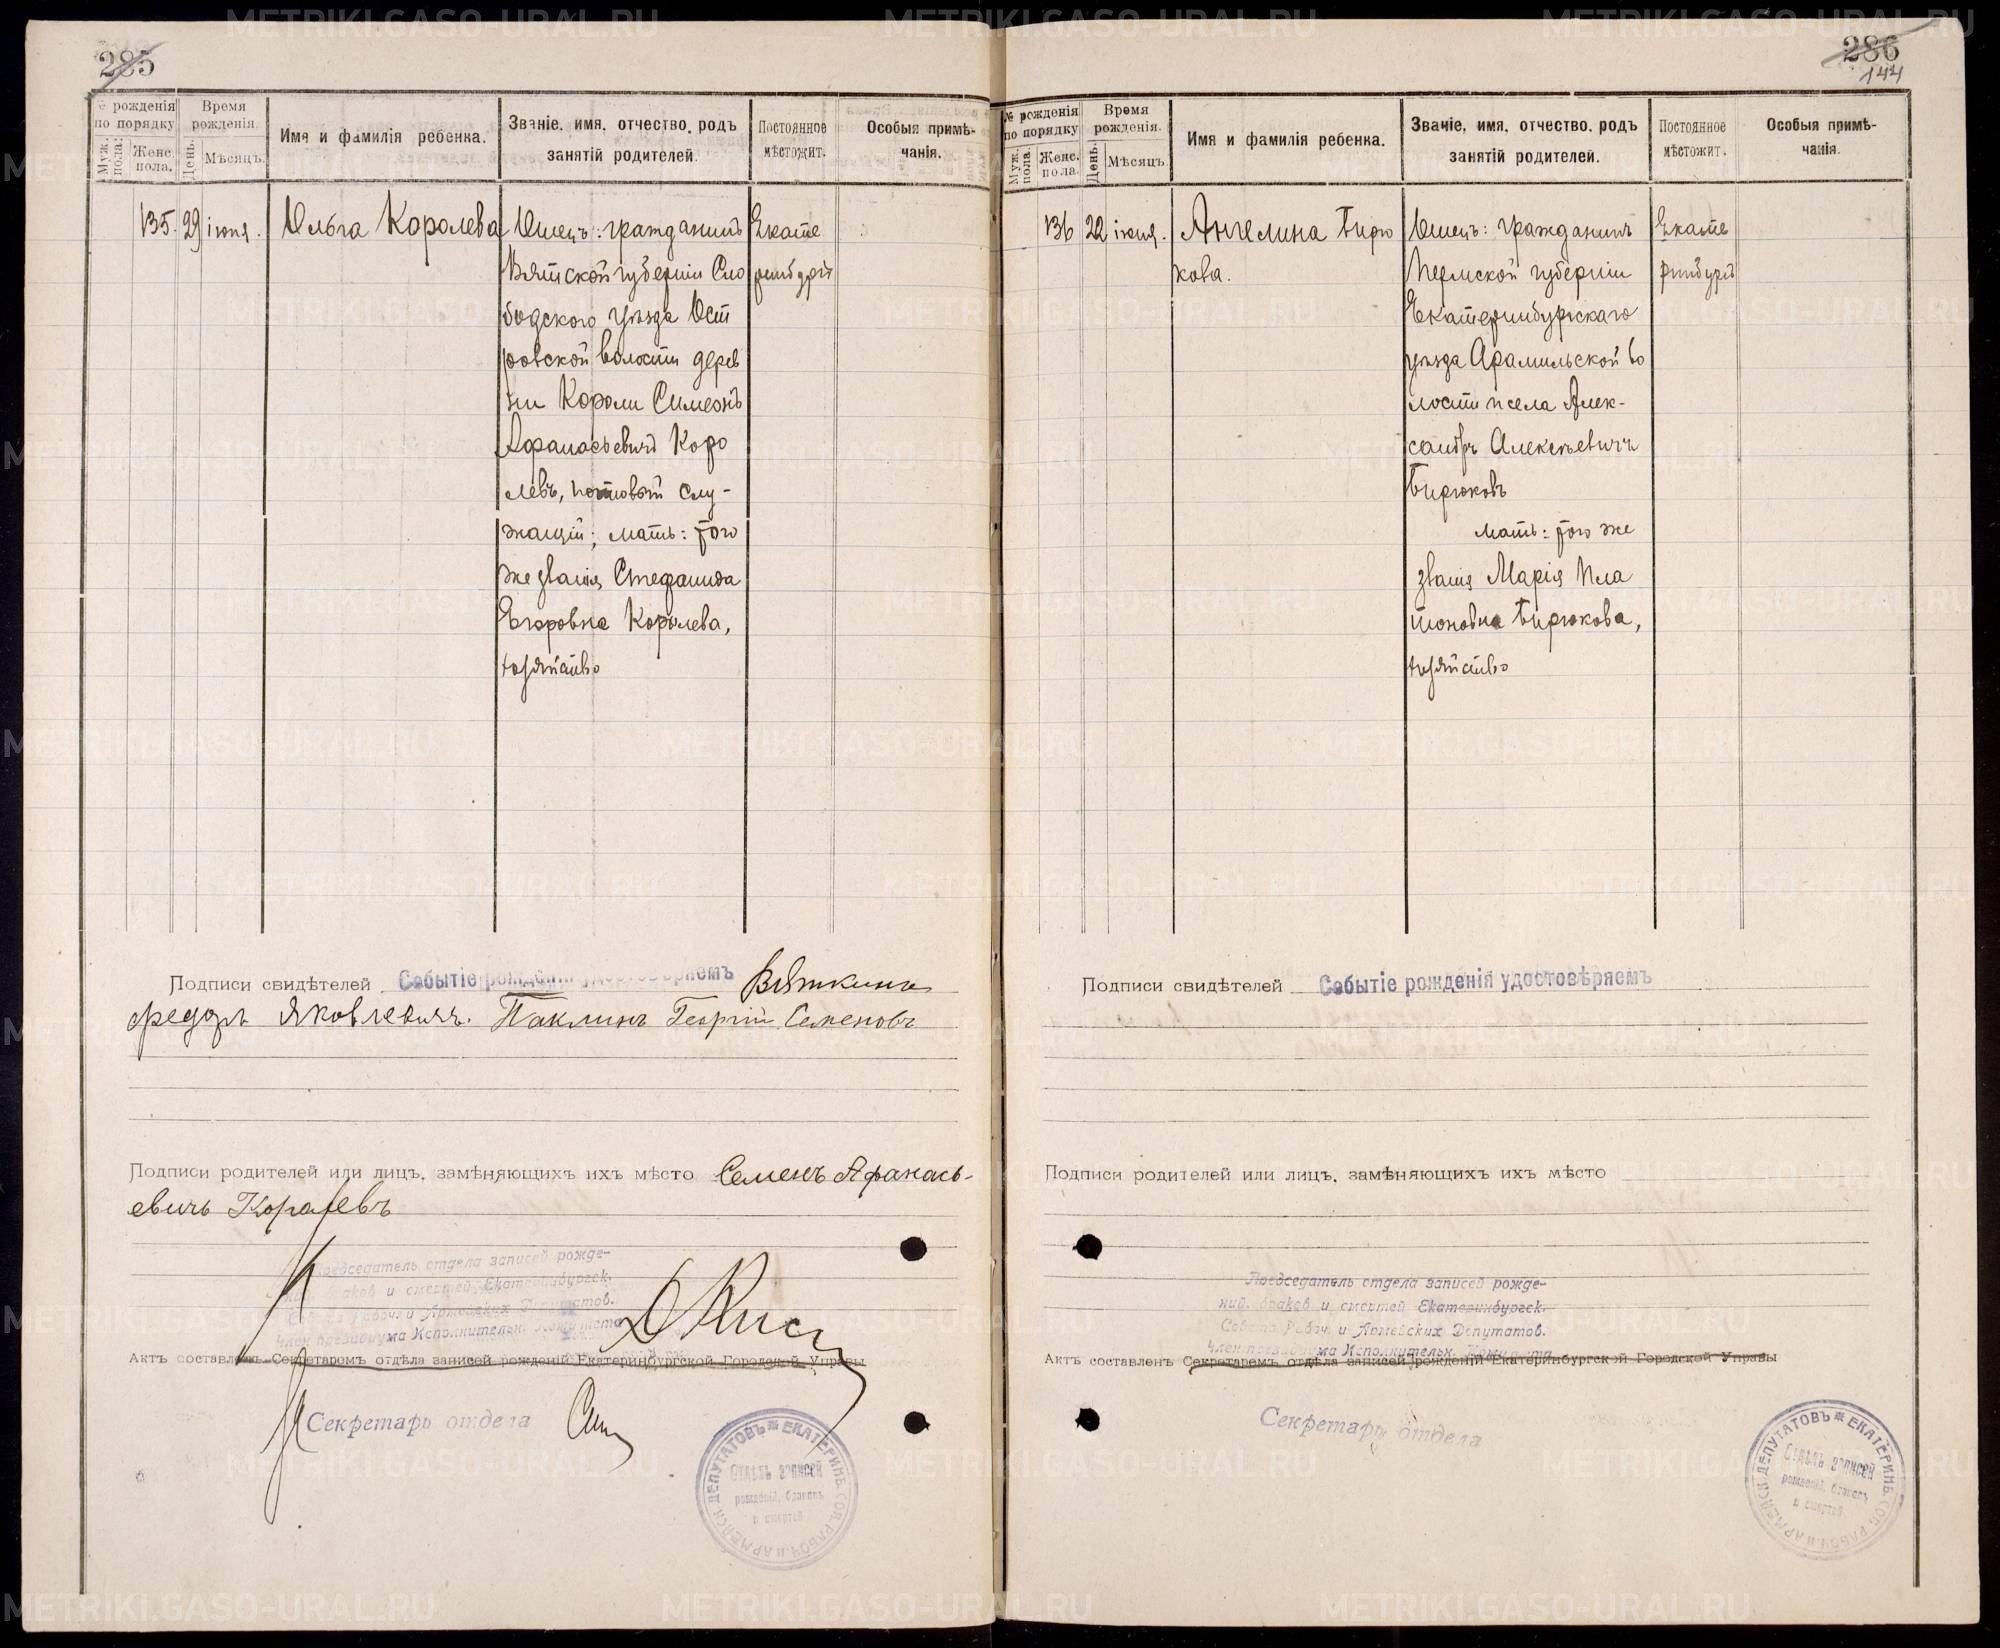 285
№ рожденія по порядку
Муж. пола.
Женс. пола.
Время рожденія.
День.
Мѣсяцъ.
Имя и фамилія ребенка.
Званіе, имя, отчество, родъ
занятій родителей.
Постоянное
мѣстожит.
Особыя примѣ-
чанія.
135. 29 іюня. Ольга Королева Отецъ: гражданинъ Екате
Вятской губерніи Сло ринбургъ
бодского уѣзда Ост
ровской волости дерев
ни Короли Симеонъ
Афанасьевичъ Коро
левъ, почтовый слу-
жащій; мать: того
же званія Стефанида
Егоровна Королева,
хозяйство
Подписи свидѣтелей Событіе рожденія удостовѣряемъ Вяткинъ
Федоръ Яковлевичъ. Паклинъ Георгій Семеновъ
Подписи родителей или лицъ, замѣняющихъ ихъ мѣсто Семенъ Афанась-
евичъ Королевъ
Председатель отдела записей рожде-
ний, браков и смертей Екатеринбургск.
Совета Рабоч. и Армейских Депутатов.
Член президиума Исполнительн. Комитета
Актъ составленъ Секретаремъ отдѣла записей рожденій Екатеринбургской Городской Управы
Секретарь отдела
ЕКАТЕРИНБ. СОВ. РАБОЧ. И АРМЕЙСК. ДЕПУТАТОВЪ
Отдѣлъ записей
рожденій, браковъ
и смертей
286
144
№ рожденія по порядку
Муж. пола.
Женс. пола.
Время рожденія.
День.
Мѣсяцъ.
Имя и фамилія ребенка.
Званіе, имя, отчество, родъ
занятій родителей.
Постоянное
мѣстожит.
Особыя примѣ-
чанія.
136 22 іюня. Ангелина Бирю Отецъ: гражданинъ Екате
кова. Пермской губерніи ринбургъ
Екатеринбургскаго
уѣзда Арамильской во
лости и села Алек-
сандръ Алексѣевичъ
Бирюковъ
мать: того же
званія Марія Пла
тоновна Бирюкова,
хозяйство
Подписи свидѣтелей Событіе рожденія удостовѣряемъ
Подписи родителей или лицъ, замѣняющихъ ихъ мѣсто
Председатель отдела записей рожде-
ний, браков и смертей Екатеринбургск.
Совета Рабоч. и Армейских Депутатов.
Член президиума Исполнительн. Комитета
Актъ составленъ Секретаремъ отдѣла записей рожденій Екатеринбургской Городской Управы
Секретарь отдела
ЕКАТЕРИНБ. СОВ. РАБОЧ. И АРМЕЙСК. ДЕПУТАТОВЪ
Отдѣлъ записей
рожденій, браковъ
и смертей
METRIKI.GASO-URAL.RU